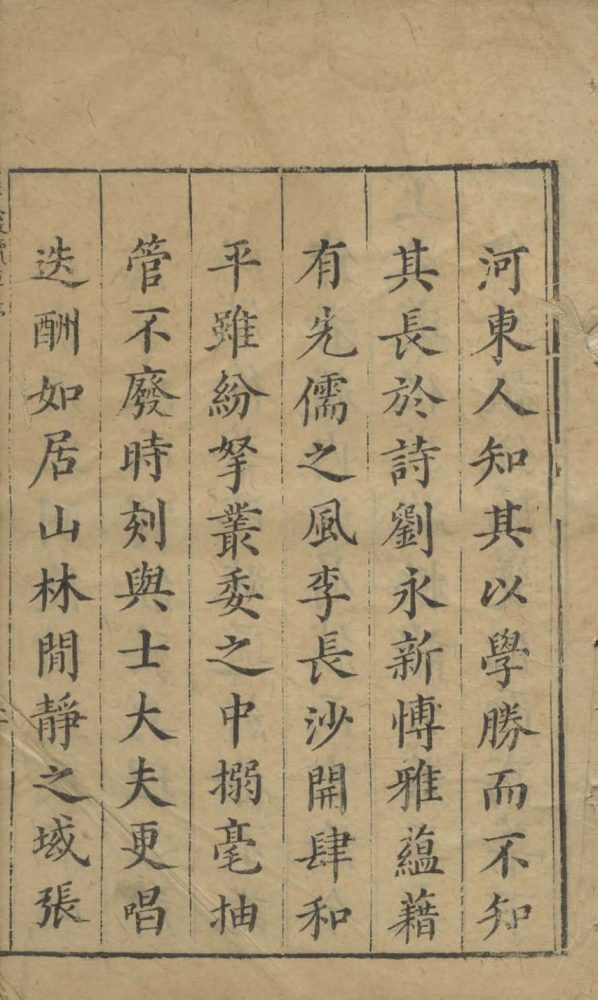 河東人知其以學勝而不知
其長於詩劉永新博雅蘊藉
有先儒之風李長沙開肆和
平雖紛拏叢委之中搦毫抽
管不廢時刻與士大夫更唱
迭酬如居山林閒靜之域張